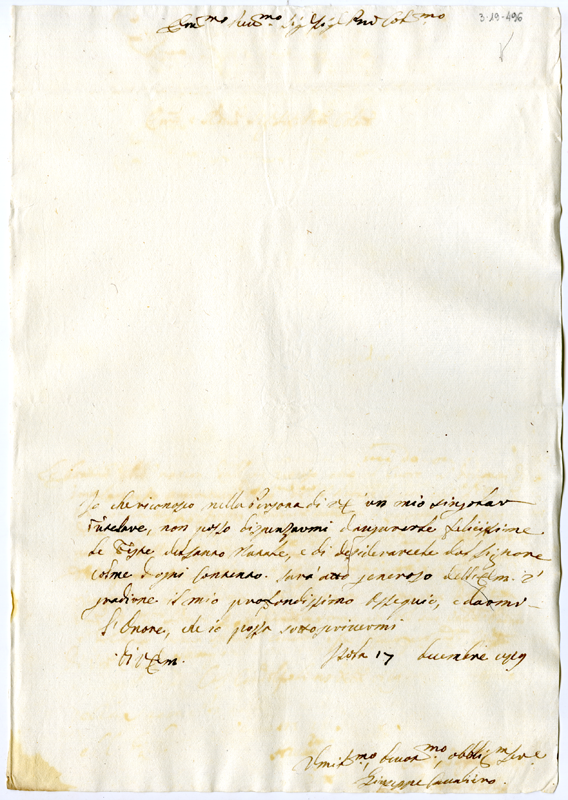 3-19-496
Em.mo Rev.mo Sig.r Sig.r Pron Col.mo
Io che riconosco nella Persona di V.E. un mio singolar
Tutelare, non posso dispenzarmi d'augurarle felicissime
le Feste del Santo Natale, e di desiderarcele dal Signore
colme d'ogni contento. Sarà atto generoso dell'Em. V.
gradirne il mio profondissimo ossequio, e darmi
l'Onore, che io possa sottoscrivermi
di V. Em.
Isola 17 Decembre 1719
Umil.mo devot.mo obblig.m Ser.e
Giuseppe Cavaliero.